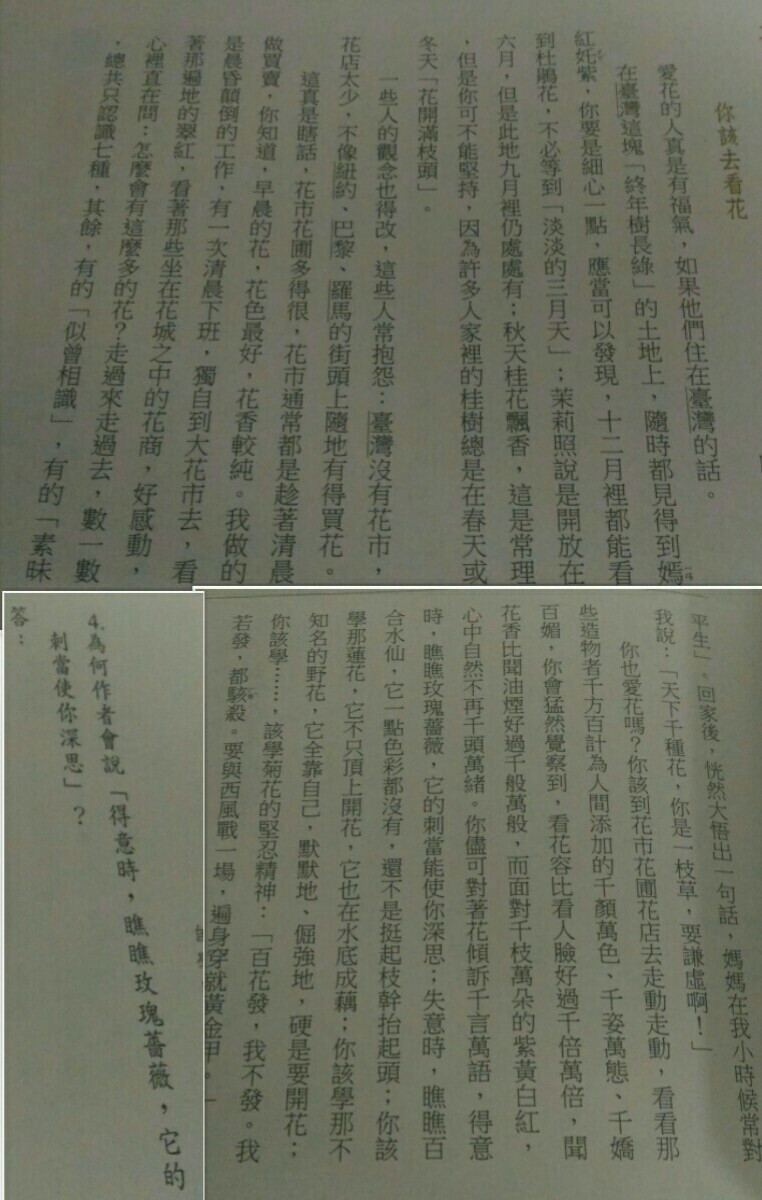 你該去看花
愛花的人真是有福氣，如果他們住在臺灣的話。
在臺灣這塊「終年樹長綠」的土地上，隨時都見得到嫣
紅奼紫，你要是細心一點，應當可以發現，十二月裡都能看
到杜鵑花，不必等到「淡淡的三月天」；茉莉照說是開放在
六月，但是此地九月裡仍處處有；秋天桂花飄香，這是常理
，但是你可不能堅持，因為許多人家裡的桂樹總是在春天或
冬天「花開滿枝頭」。
一些人的觀念也得改，這些人常抱怨：臺灣沒有花市，
花店太少，不像紐約、巴黎、羅馬的街頭上隨地有得買花。
這真是瞎話，花市花圃多得很，花市通常都是趁著清晨
做買賣，你知道，早晨的花，花色最好，花香較純。我做的
是晨昏顛倒的工作，有一次清晨下班，獨自到大花市去，看
著那遍地的翠紅，看著那些坐在花城之中的花商，好感動，
心裡直在問：怎麼會有這麼多的花？走過來走過去，數一數
，總共只認識七種，其餘，有的「似曾相識」，有的「素昧
平生」。回家後，恍然大悟出一句話，媽媽在我小時候常對
我說：「天下千種花，你是一枝草，要謙虛啊！」
你也愛花嗎？你該到花市花圃花店去走動走動，看看那
些造物者千方百計為人間添加的千顏萬色、千姿萬態、千嬌
百媚，你會猛然覺察到，看花容比看人臉好過千倍萬倍，聞
花香比聞油煙好過千般萬般，而面對千枝萬朵的紫黃白紅，
心中自然不再千頭萬緒。你儘可對著花傾訴千言萬語，得意
時，瞧瞧玫瑰薔薇，它的刺當能使你深思；失意時，瞧瞧百
合水仙，它一點色彩都沒有，還不是挺起枝幹抬起頭；你該
學那蓮花，它不只頂上開花，它也在水底成藕；你該學那不
知名的野花，它全靠自己，默默地、倔強地，硬是要開花；
你該學……，該學菊花的堅忍精神：「百花發，我不發。我
若發，都駭殺。要與西風戰一場，遍身穿就黃金甲。」
4.為何作者會說「得意時，瞧瞧玫瑰薔薇，它的
刺當使你深思」？
答：